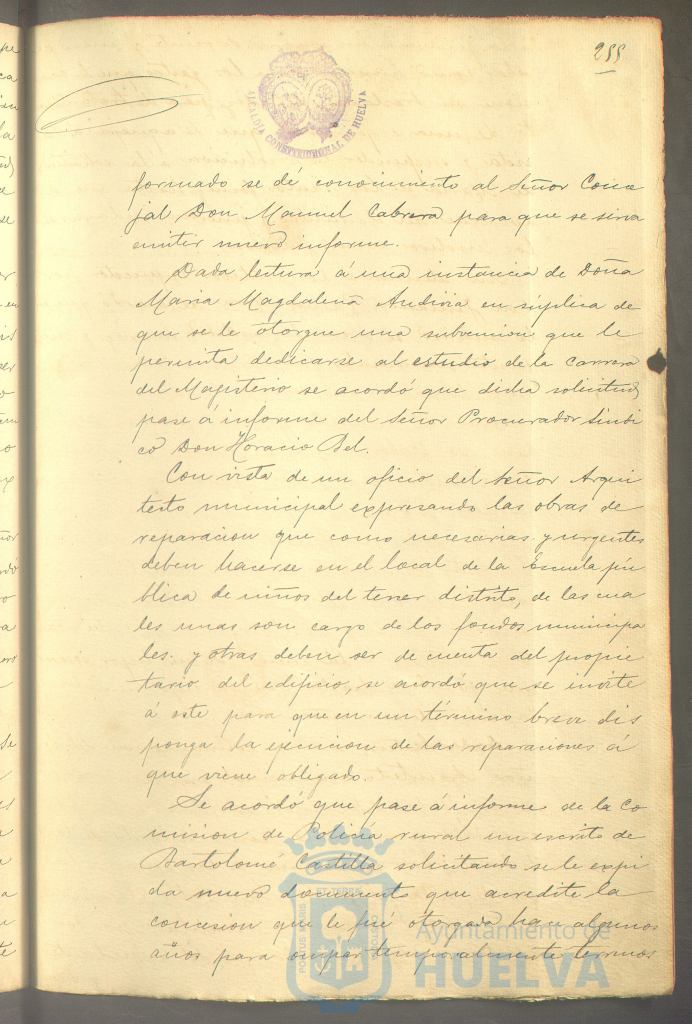 255
ALCALDIA CONSTITUCIONAL DE HUELVA
formado se dé conocimiento al Señor Conce
jal Don Manuel Cabrera para que se sirva
emitir nuevo informe.
Dada lectura á una instancia de Doña
Maria Magdalena Andivia en súplica de
que se le otorgue una subvencion que le
permita dedicarse al estudio de la carrera
del Magisterio se acordó que dicha solicitud
pase á informe del Señor Procurador Sindi
co Don Horacio Bel.
Con vista de un oficio del Señor Arqui
tecto municipal expresando las obras de
reparacion que como necesarias y urgentes
deben hacerse en el local de la Escuela pú
blica de niños del tercer distrito, de las cua
les unas son cargo de los fondos municipa
les y otras deben ser de cuenta del propie
tario del edificio, se acordó que se invite
á este para que en un término breve dis
ponga la ejecucion de las reparaciones á
que viene obligado.
Se acordó que pase á informe de la Co
mision de Policía rural un escrito de
Bartolomé Castilla solicitando se le expi
da nuevo documento que acredite la
concesion que le fué otorgada hace algunos
años para ocupar temporalmente terrenos
PORTUS MARIS ET TERRE CUSTODIA
Ayuntamiento de
HUELVA